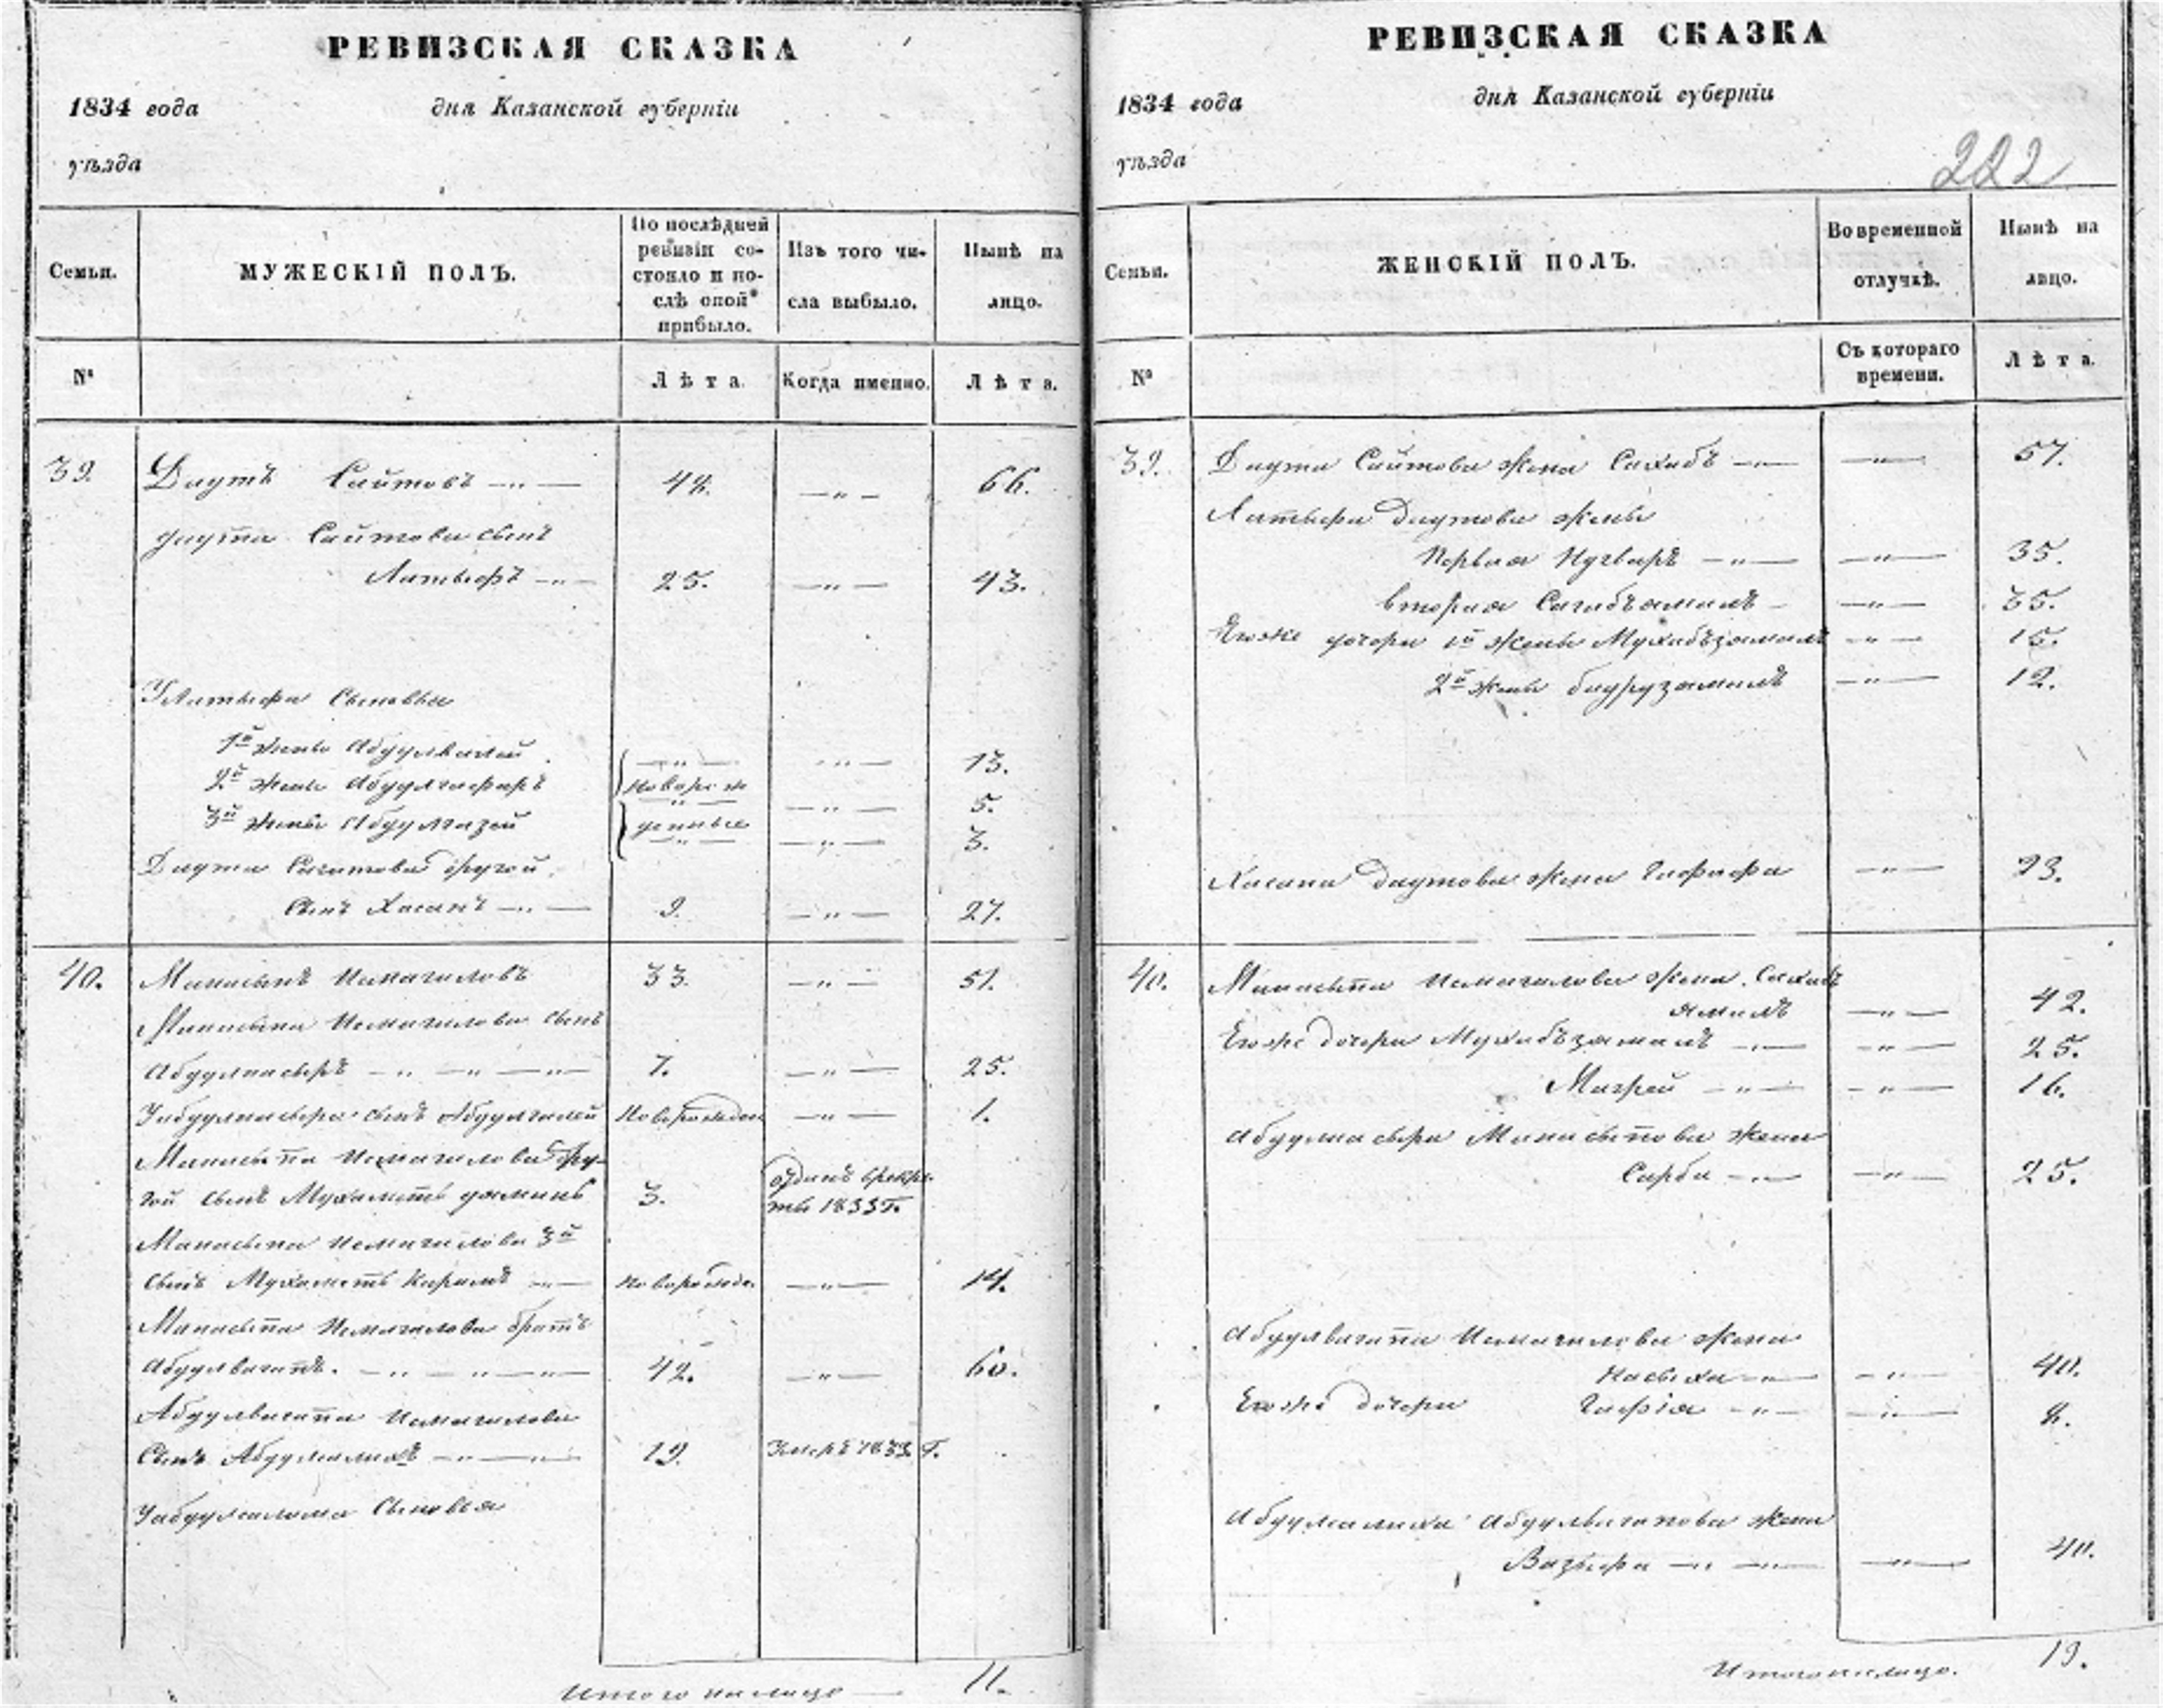 РЕВИЗСКАЯ СКАЗКА
1834 года дня Казанской губерніи
уѣзда
Семьи. МУЖЕСКІЙ ПОЛЪ. По послѣдней ревизіи состояло и послѣ оной прибыло. Изъ того числа выбыло. Нынѣ на лицо.
№ Лѣта. Когда именно. Лѣта.
39. Даутъ Саитовъ —"— 48. —"— 66.
Даута Саитова сынъ
Латыфъ —"— 25. —"— 43.
У Латыфа Сыновья
1й жены Абдулвалей —"— —"— 13.
2й жены Абдулгафаръ Новорож —"— 5.
3й жены Абдулгазей денные —"— 3.
Даута Сагитова другой
Сынъ Хасанъ —"— 9. —"— 27.
40. Манасыпъ Исмагиловъ 33. —"— 51.
Манасыпа Исмагилова сынъ
Абдулнасыръ —"—"— 7. —"— 25.
У Абдулнасыра сынъ Абдулгалей Новорожден —"— 1.
Манасыпа Исмагилова дру-
гой сынъ Мухаметь 3. отданъ врекру
ты 1833 г.
Манасыпа Исмагилова 3й
сынъ Мухаметь Каримъ —"— Новорожде. —"— 14.
Манасыпа Исмагилова братъ
Абдулвагапъ. —"—"— 42. —"— 60.
Абдулвагапа Исмагилова
Сынъ Абдулсалихъ —"— 19. Умеръ г.
Сыновья
Итого налицо — 11.
РЕВИЗСКАЯ СКАЗКА
1834 года дня Казанской губерніи
уѣзда
222
Семьи. ЖЕНСКІЙ ПОЛЪ. Во временной отлучкѣ. Нынѣ на лицо.
№ Съ котораго времени. Лѣта.
39. Даута Саитова жена Сахибъ —"— —"— 57.
Латыфа Даутова жены
Первая —"— —"— 35.
вторая Сагибъямалъ —"— 35.
Егоже дочери 1й жены Мухибъзямалъ —"— 15.
2й жены Бадрузямалъ —"— 12.
Хасана Даутова жена Гафифа —"— 23.
40. Манасыпа Исмагилова жена Сахибъ
ямалъ —"— 42.
Егоже дочери Мухибъзямалъ —"— —"— 25.
—"— —"— 16.
Абдулнасыра Манасыпова жена
Сарба —"— —"— 25.
Абдулвагапа Исмагилова жена
Насыха —"— —"— 40.
Егоже дочери Гафія —"— —"— 8.
Абдулсалиха Абдулвагапова жена
Вазыфа —"— —"— 40.
Итого налицо.